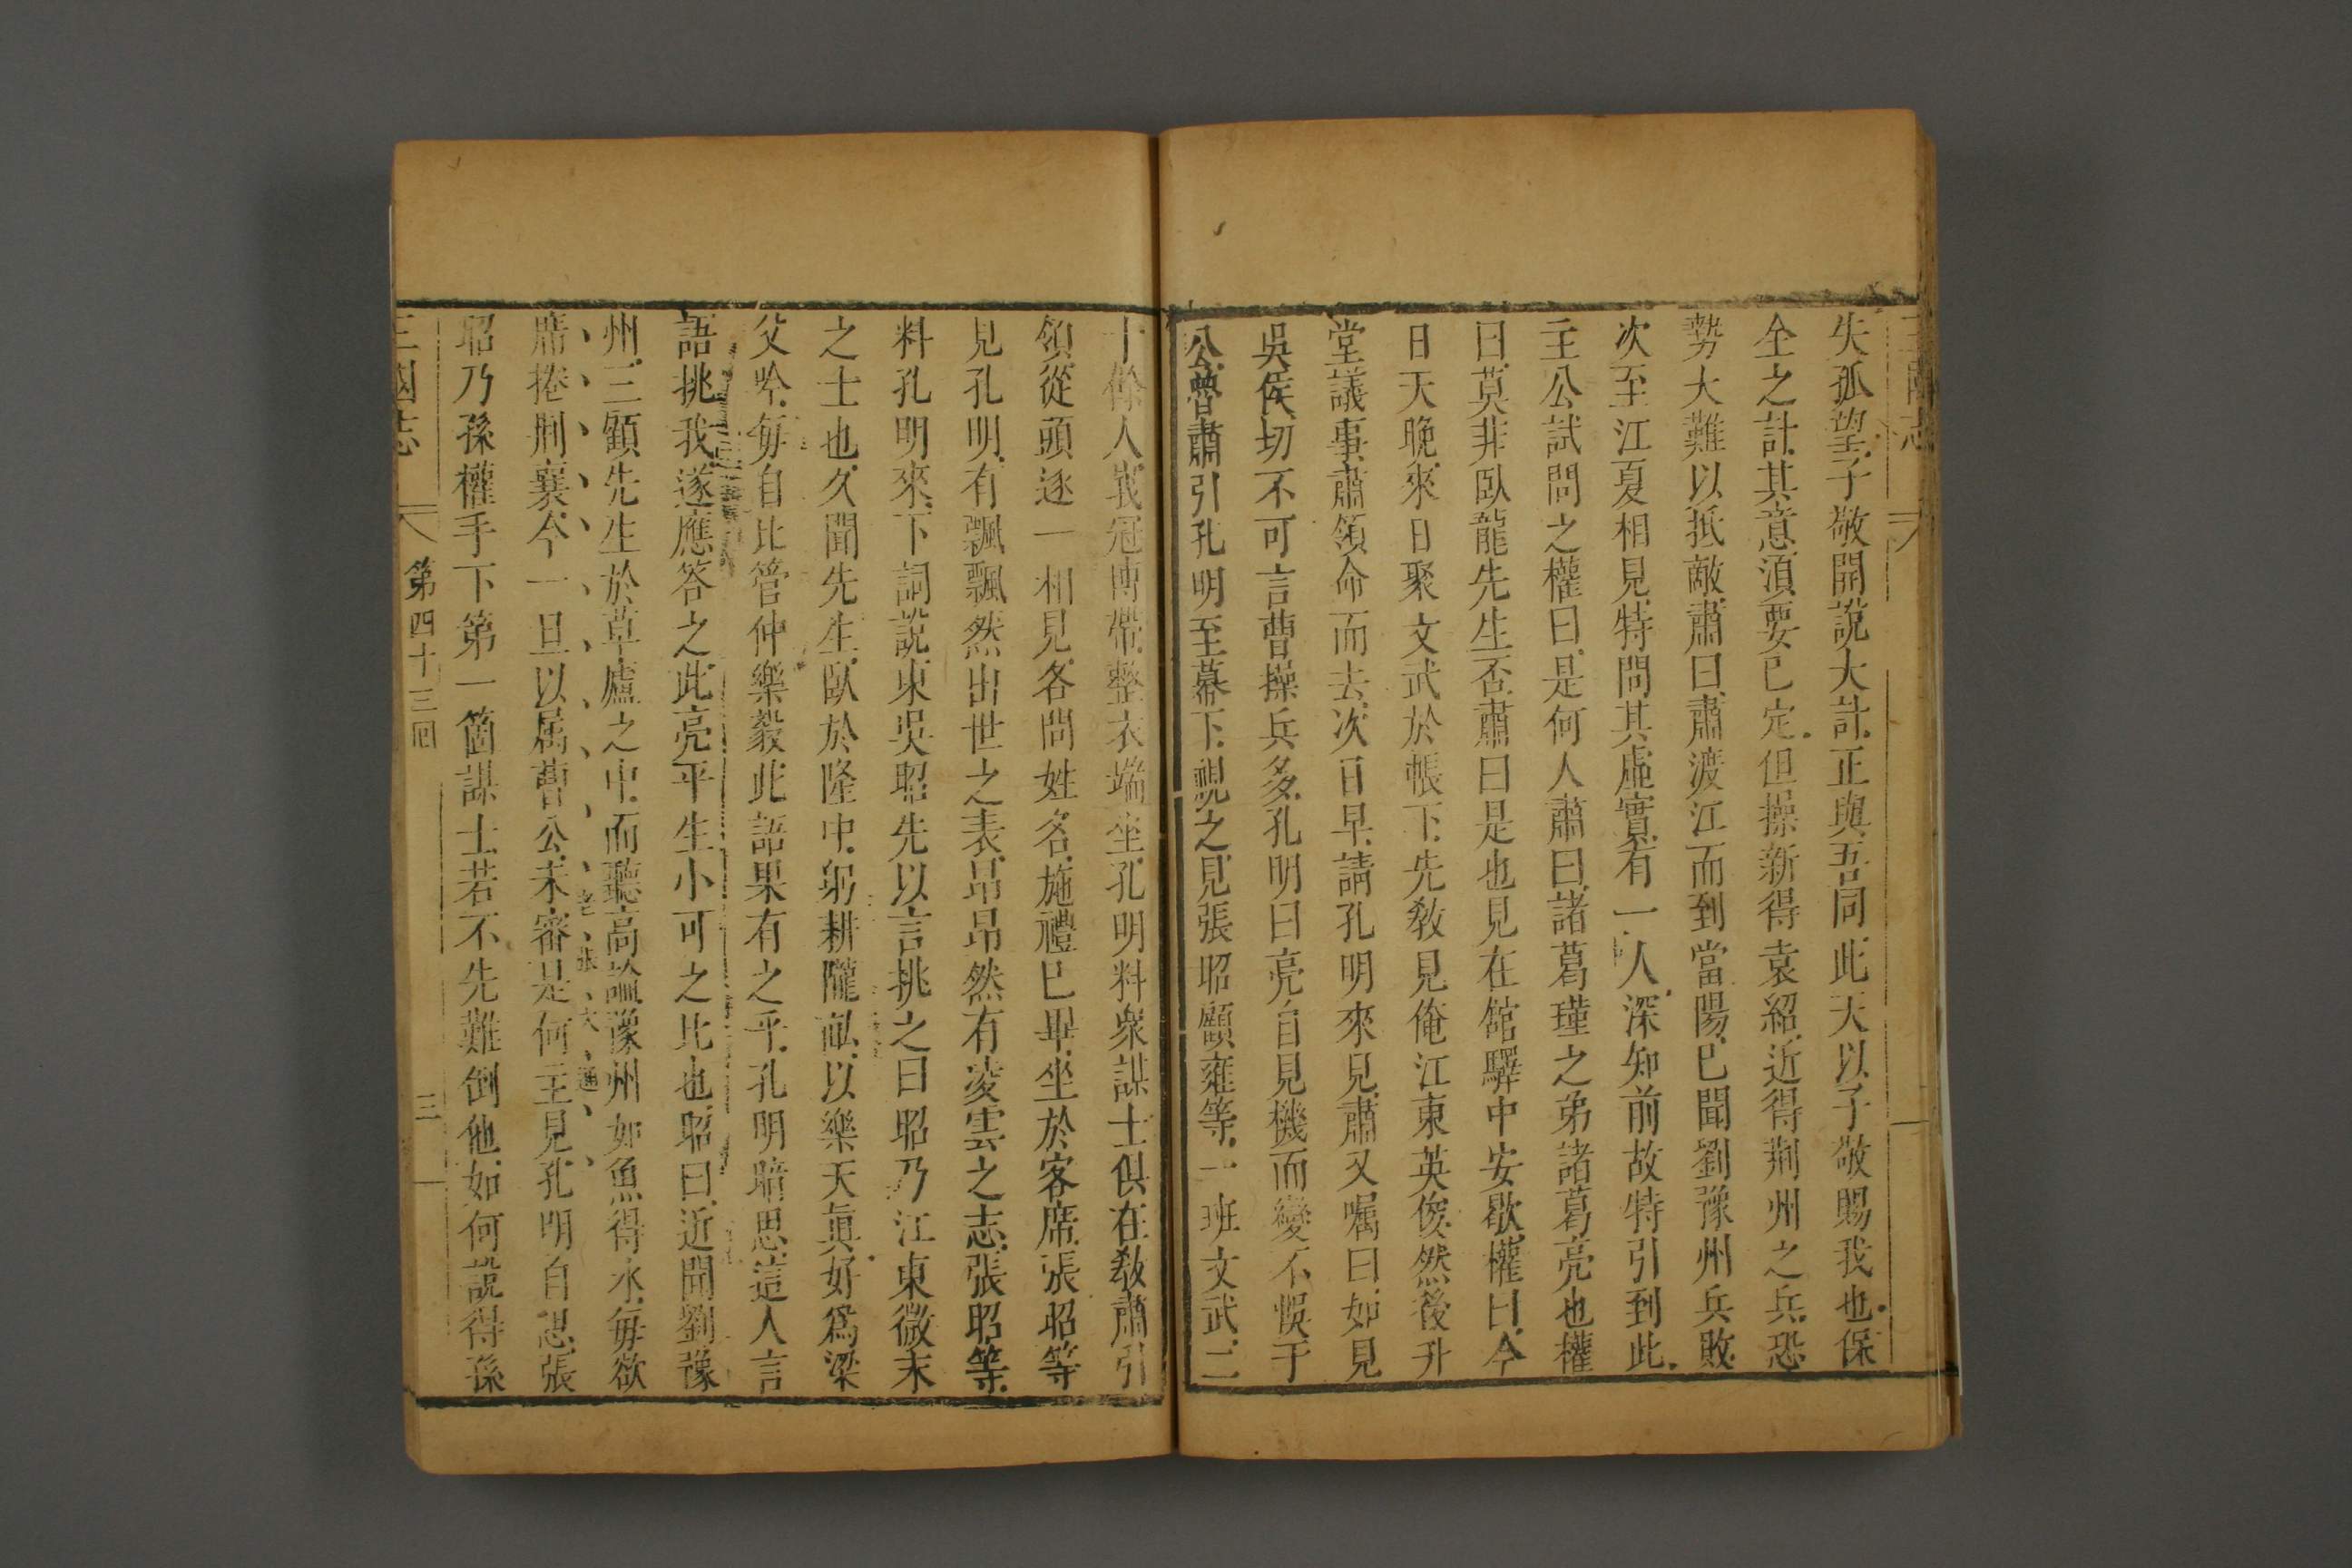 三國志
失孤望子敬開說大計正與吾同此天以子敬賜我也保
全之計其意須要已定但操新得袁紹近得荆州之兵恐
勢大難以抵敵肅曰肅渡江而到當陽已聞劉豫州兵敗
次至江夏相見特問其虛實有一人深知前故特引到此
主公試問之權曰是何人肅曰諸葛瑾之弟諸葛亮也權
曰莫非臥龍先生否肅曰是也見在館驛中安歇權曰今
日天晚來日聚文武於帳下先敎見俺江東英俊然後升
堂議事肅領命而去次日早請孔明來見肅又囑曰如見
吳侯切不可言曹操兵多孔明曰亮自見機而變不悞于
公魯肅引孔明至幕下視之見張昭顧雍等一班文武二
十餘人峩冠博帶整衣端坐孔明料衆謀士俱在敎肅引
領從頭逐一相見各問姓名施禮已畢坐於客席張昭等
見孔明有飄飄然出世之表昂昂然有凌雲之志張昭等
料孔明來下詞說東吳昭先以言挑之曰昭乃江東微末
之士也久聞先生臥於隆中躬耕隴畝以樂天眞好爲梁
父吟每自比管仲樂毅此語果有之乎孔明暗思這人言
語挑我遂應答之此亮平生小可之比也昭曰近聞劉豫
州三顧先生於草廬之中而聽高論豫州如魚得水每欲
席捲荆襄今一旦以属曹公未審是何主見孔明自思張
昭乃孫權手下第一箇謀士若不先難倒他如何說得孫
三國志
第四十三囘
三